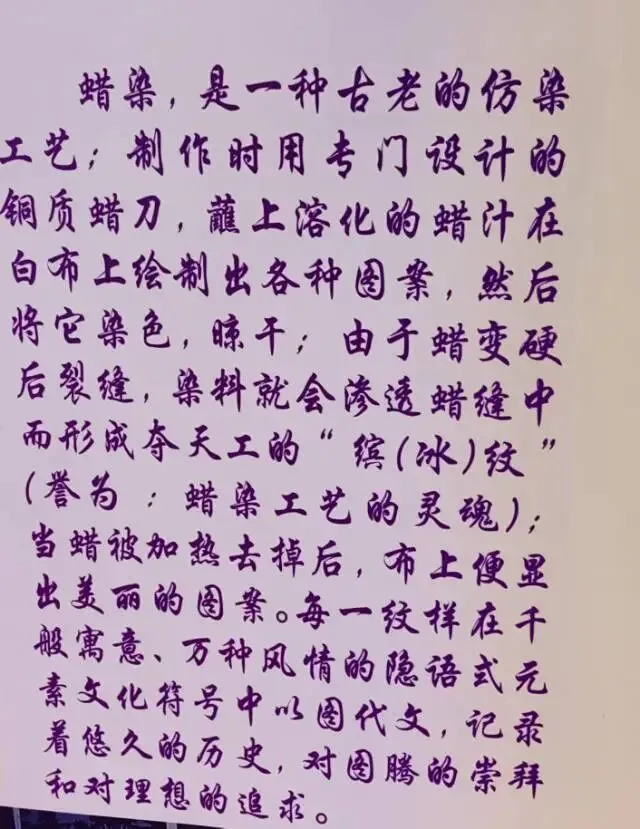 蜡染，是一种古老的仿染
工艺；制作时用专门设计的
铜质蜡刀，蘸上溶化的蜡汁在
白布上绘制出各种图案，然后
将它染色，晾干；由于蜡变硬
后裂缝，染料就会渗透蜡缝中
而形成夺天工的“缤(冰)纹”
(誉为：蜡染工艺的灵魂)；
当蜡被加热去掉后，布上便显
出美丽的图案。每一纹样在千
般寓意、万种风情的隐语式元
素文化符号中以图代文，记录
着悠久的历史，对图腾的崇拜
和对理想的追求。